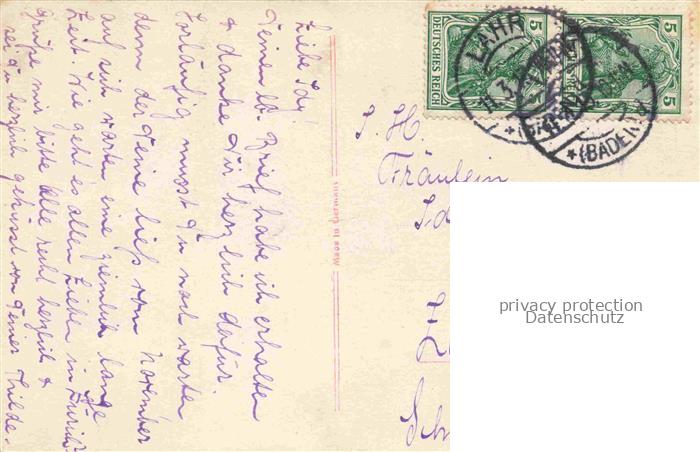 Liebe Ida!
Deinen lb. Brief habe ich erhalten
& danke Dir herzlich dafür.
Vorläufig musst Du noch warten
denn der Deine ließ vom November
auf sich warten eine ziemlich lange
Zeit. Wie geht es allen Lieben in Zürich?
Grüße mir bitte Alle recht herzlich &
sei Du herzlich geküsst von Deiner Hilde.
Made in Germany
S. H.
Fräulein
Sch
DEUTSCHES REICH
5
5
LAHR
11.3.
*(BADEN)
*(BADEN)
privacy protection
Datenschutz